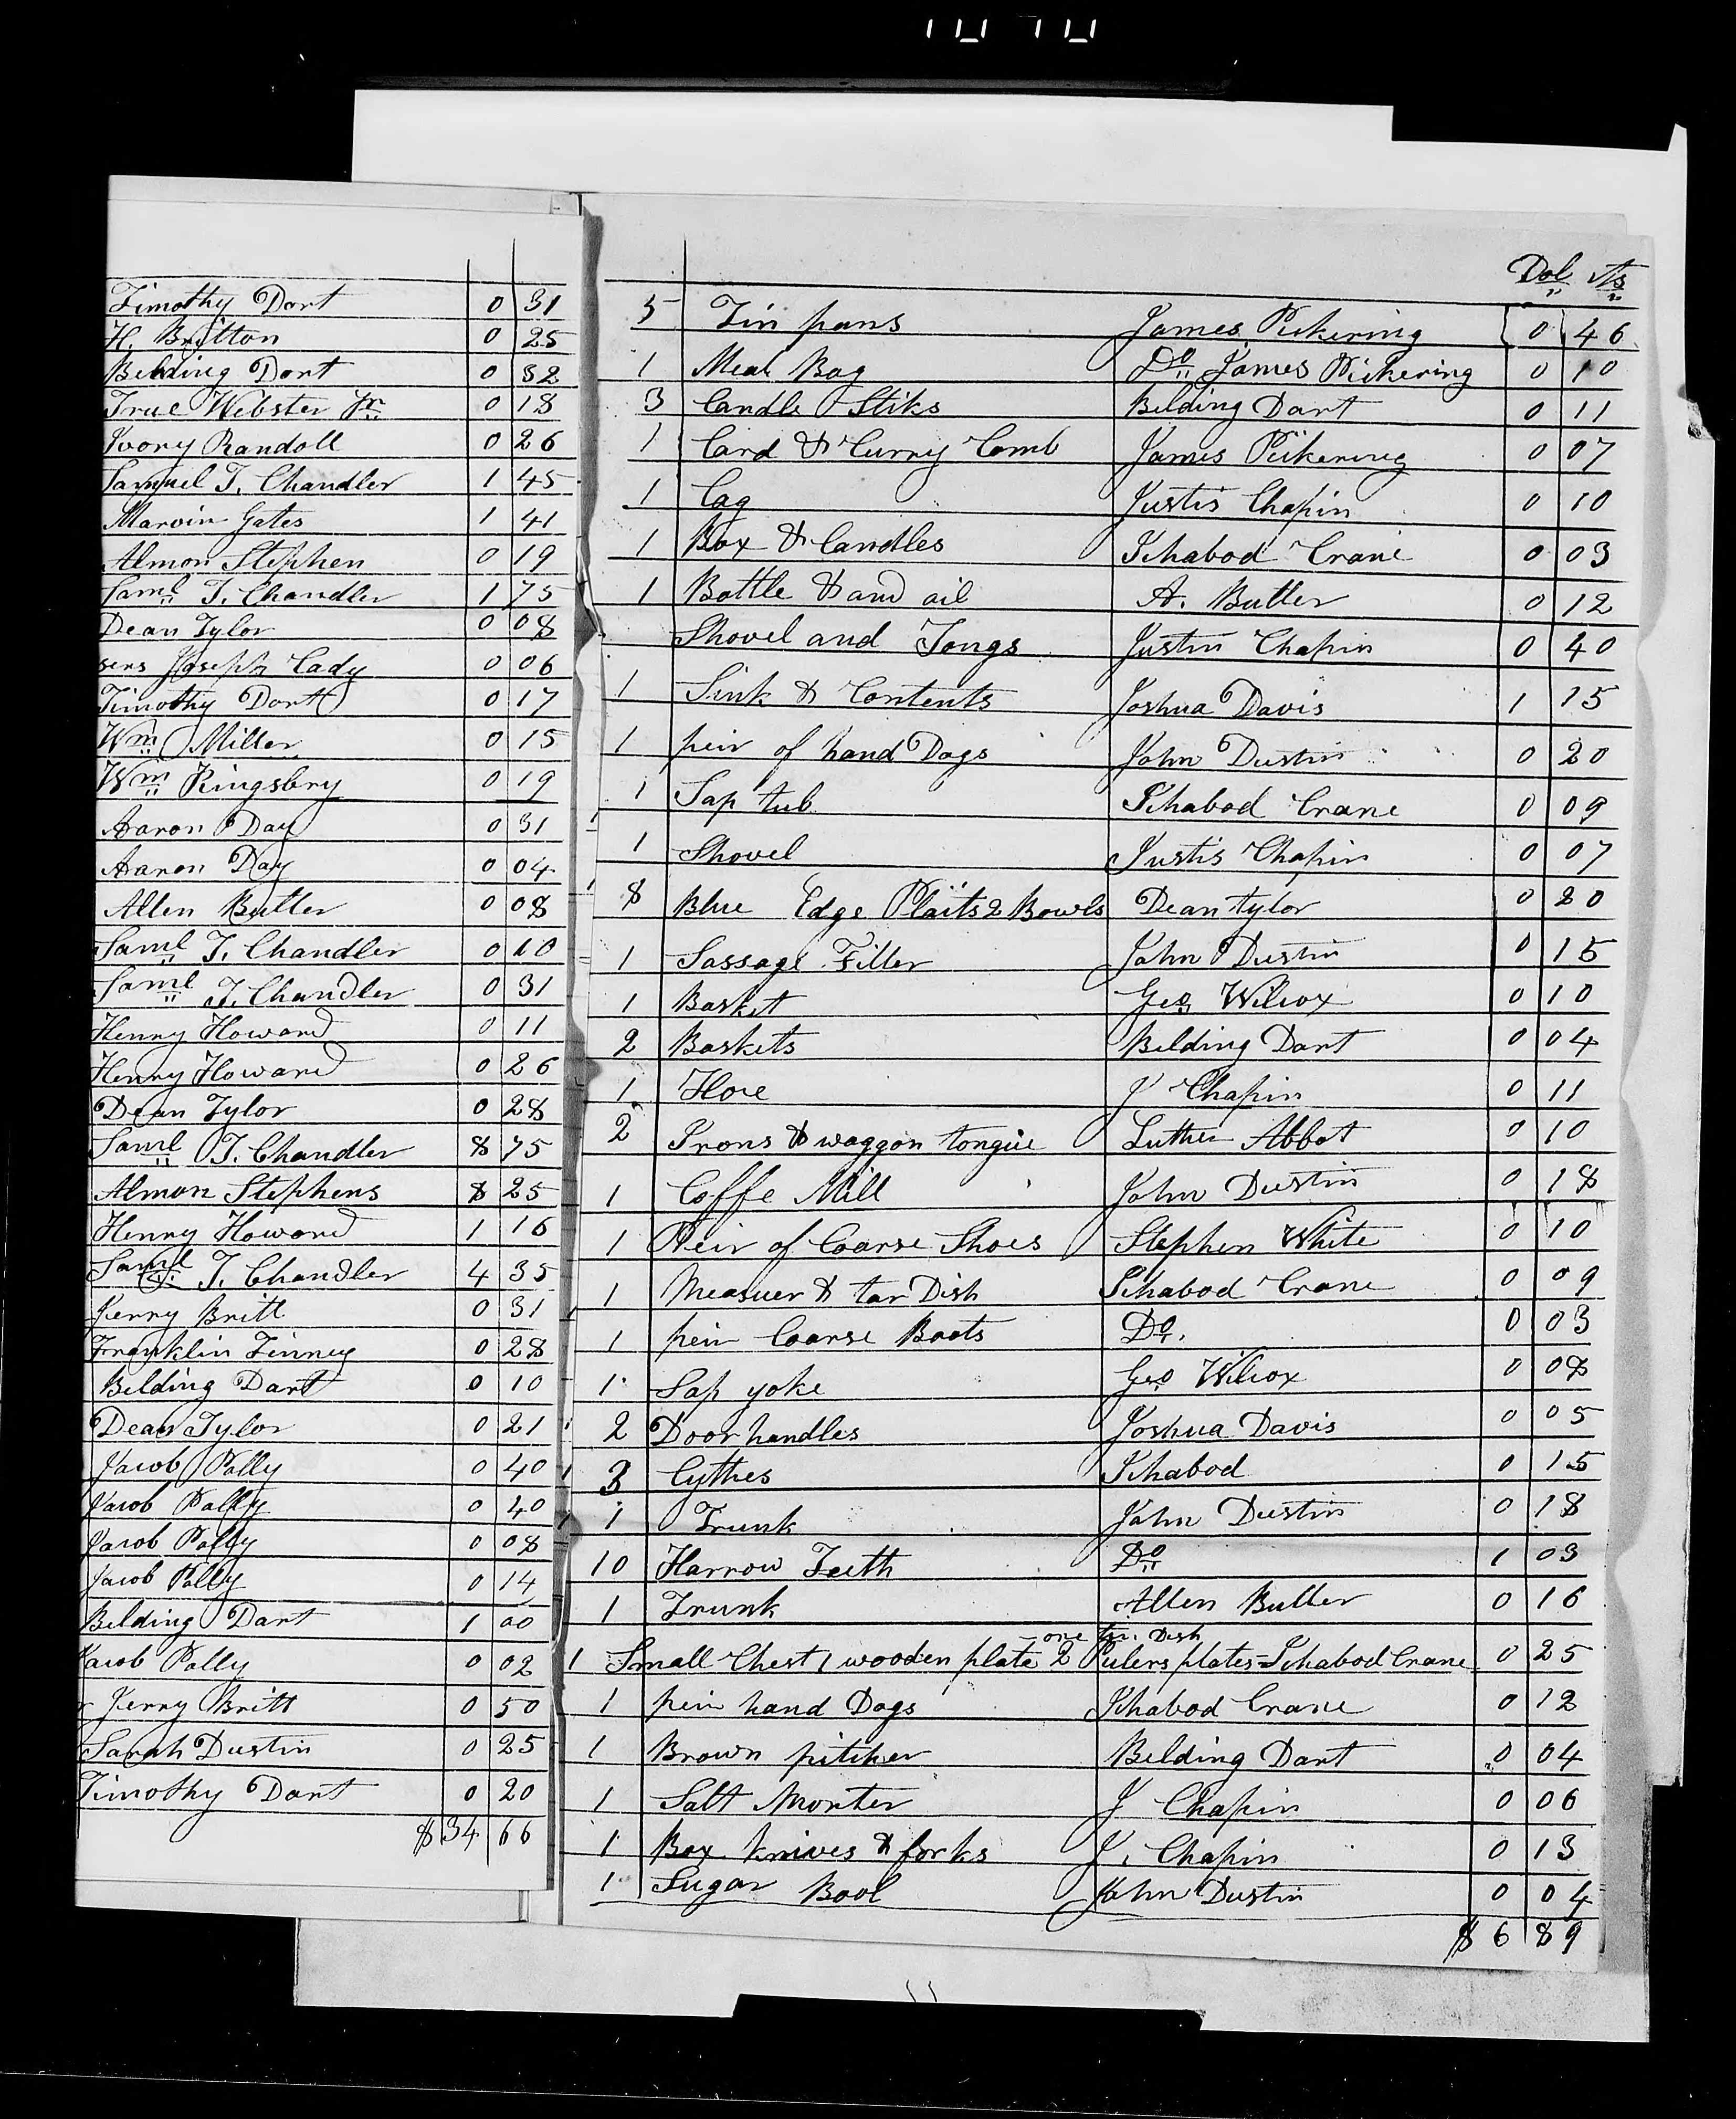 Timothy Dart 0 31
H. Britton 0 25
Belding Dart 0 32
True Webster Jr 0 18
Ivory Randoll 0 26
Samuel T. Chandler 1 45
Marvin Gates 1 41
Almon Stephen 0 19
Saml T. Chandler 1 75
Dean Tylor 0 08
sers Joseph Cady 0 06
Timothy Dart 0 17
Wm Miller 0 15
Wm Kingsbry 0 19
Aaron Day 0 31
Aaron Day 0 04
Allen Butler 0 08
Saml T. Chandler 0 10
Saml T. Chandler 0 31
Henry Howard 0 11
Henry Howard 0 26
Dean Tylor 0 28
Saml T. Chandler 8 75
Almon Stephens 8 25
Henry Howard 1 16
Saml T. Chandler 4 35
Kerry Britt 0 31
Franklin Finney 0 28
Belding Dart 0 10
Dean Tylor 0 21
Jacob Polly 0 40
Jacob Polly 0 40
Jacob Polly 0 08
Jacob Polly 0 14
Belding Dart 1 00
Jacob Polly 0 02
Kerry Britt 0 50
Sarah Dustin 0 25
Timothy Dart 0 20
$34 66
Dol cts
5 Tin pans James Pickering 0 46
1 Meal Bag Do James Pickering 0 10
3 Candle Stiks Belding Dart 0 11
1 Card & Curry Comb James Pickering 0 07
1 Cag Justis Chapin 0 10
1 Box & Candles Ichabod Crane 0 03
1 Bottle & and oil A. Butler 0 12
Shovel and Tongs Justin Chapin 0 40
1 Sink & Contents Joshua Davis 1 15
1 peir of hand Dogs John Dustin 0 20
1 Sap tub Ichabod Crane 0 09
1 Shovel Justis Chapin 0 07
8 Blue Edge Plaits 2 Bowls Dean tylor 0 20
1 Sassage Filler John Dustin 0 15
1 Basket Geo Wilcox 0 10
2 Baskets Belding Dart 0 04
1 Hoe J Chapin 0 11
2 Irons & waggon tongue Luther Abbot 0 10
1 Coffe Mill John Dustin 0 18
1 Peir of Coarse Shoes Stephen White 0 10
1 Measuer & tar Dish Ichabod Crane 0 09
1 peir Coarse Boots Do. 0 03
1 Sap yoke Geo Wilcox 0 08
2 Door handles Joshua Davis 0 05
3 Cythes Ichabod 0 15
1 Trunk John Dustin 0 18
10 Harrow Teeth Do 1 03
1 Trunk Allen Butler 0 16
one tin Dish
1 Small Chest 1 wooden plate 2 plates Ichabod Crane 0 25
1 peir hand Dogs Ichabod Crane 0 12
1 Brown pitcher Belding Dart 0 04
1 Salt Morter J Chapin 0 06
1 Box knives & forks J. Chapin 0 13
1 Sugar Bool John Dustin 0 04
$6 89